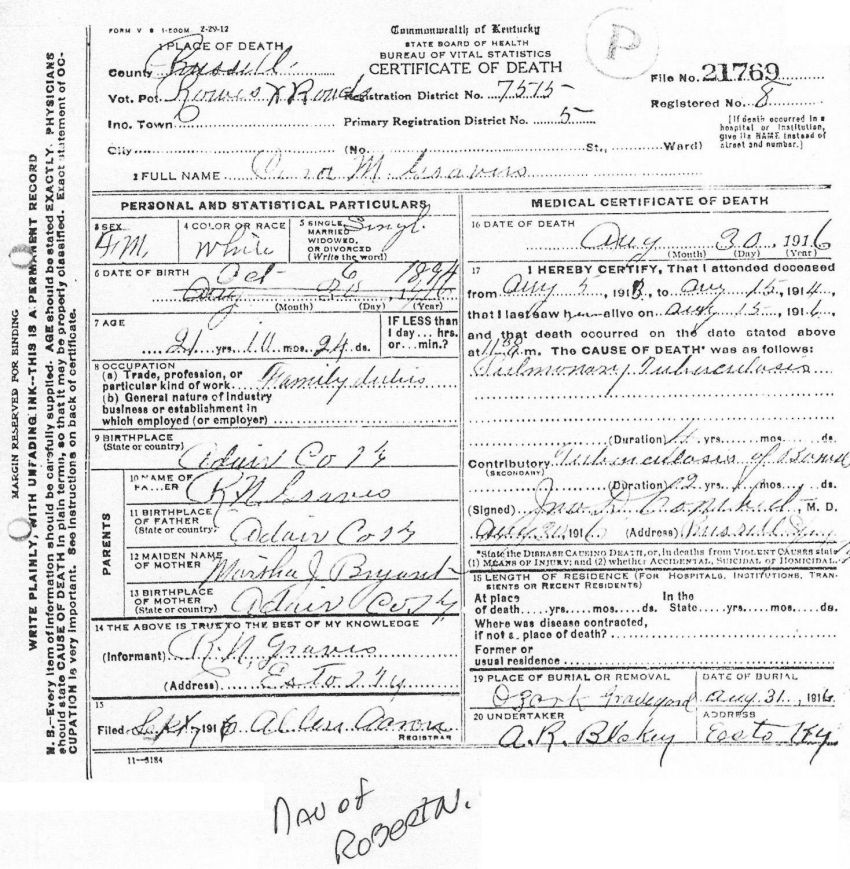 FORM V S 1-500M 2-29-12
Commonwealth of Kentucky
STATE BOARD OF HEALTH
BUREAU OF VITAL STATISTICS
CERTIFICATE OF DEATH
P
1 PLACE OF DEATH
County Russell
File No. 21769
Vot. Pct. Rowes X Roads Registration District No. 7515
Registered No. 8
Inc. Town Primary Registration District No. 5
(If death occurred in a hospital or institution, give its NAME instead of street and number.)
City (No. St., Ward)
2 FULL NAME M. Graves
PERSONAL AND STATISTICAL PARTICULARS
3 SEX
Fm.
4 COLOR OR RACE
White
5 SINGLE, MARRIED WIDOWED, OR DIVORCED (Write the word)
Singl.
6 DATE OF BIRTH
Oct 6 1894
(Month) (Day) (Year)
7 AGE
21 yrs. 10 mos. 24 ds.
IF LESS than 1 day... hrs. or... min.?
8 OCCUPATION
(a) Trade, profession, or particular kind of work Family duties
(b) General nature of industry business or establishment in which employed (or employer)
9 BIRTHPLACE
(State or country) Adair Co Ky
PARENTS
10 NAME OF FA...ER R N Graves
11 BIRTHPLACE OF FATHER
(State or country) Adair Co Ky
12 MAIDEN NAME OF MOTHER Martha J Bryant
13 BIRTHPLACE OF MOTHER
(State or country) Adair Co Ky
14 THE ABOVE IS TRUE TO THE BEST OF MY KNOWLEDGE
(Informant) R. N. Graves
(Address) Esto Ky
15
Filed Sept 7, 1916 Allen Aaron
REGISTRAR
11-3184
MEDICAL CERTIFICATE OF DEATH
16 DATE OF DEATH
Aug 30, 1916
(Month) (Day) (Year)
17 I HEREBY CERTIFY, That I attended deceased
from Aug 5, 191 , to Aug 15, 191 ,
that I last saw h alive on Aug 15, 1916,
and that death occurred on the date stated above
at m. The CAUSE OF DEATH* was as follows:
Pulmonary Tuberculosis
(Duration) yrs. mos. ds.
Contributory Tuberculosis of
(SECONDARY)
(Duration) yrs. mos. ds.
(Signed) , M. D.
Aug 31, 1916 (Address) Russell
*State the DISEASE CAUSING DEATH, or, in deaths from VIOLENT CAUSES state (1) MEANS OF INJURY; and (2) whether ACCIDENTAL, SUICIDAL or HOMICIDAL.
18 LENGTH OF RESIDENCE (FOR HOSPITALS, INSTITUTIONS, TRANSIENTS OR RECENT RESIDENTS)
At place of death yrs. mos. ds. In the State yrs. mos. ds.
Where was disease contracted, if not a place of death?
Former or usual residence
19 PLACE OF BURIAL OR REMOVAL
Ozark Graveyard
DATE OF BURIAL
Aug 31, 1916
20 UNDERTAKER
A. R. Blakey
ADDRESS
Esto Ky
MARGIN RESERVED FOR BINDING
WRITE PLAINLY, WITH UNFADING INK--THIS IS A PERMANENT RECORD
N. B.--Every item of information should be carefully supplied. AGE should be stated EXACTLY. PHYSICIANS
should state CAUSE OF DEATH in plain terms, so that it may be properly classified. Exact statement of OC-
CUPATION is very important. See instructions on back of certificate.
DAU OF
ROBERT N.